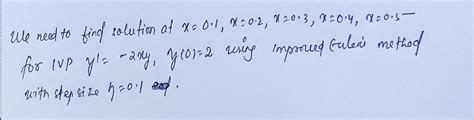 We need to find solution at x=0.1, x=0.2, x=0.3, x=0.4, x=0.5
for IVP y' = -2xy, y(0)=2 using improved Euler's method
with step size h=0.1